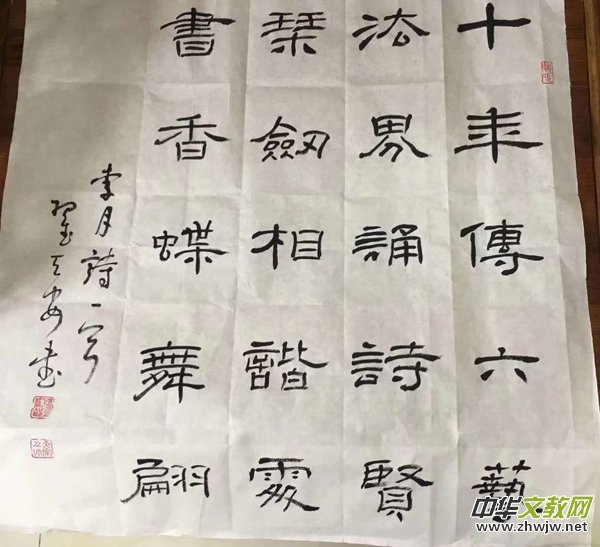 十年傳六藝
法界誦詩賢
琹劒相諧處
書香蝶舞翩
李月詩一首
中华文教网
www.zhwjw.net